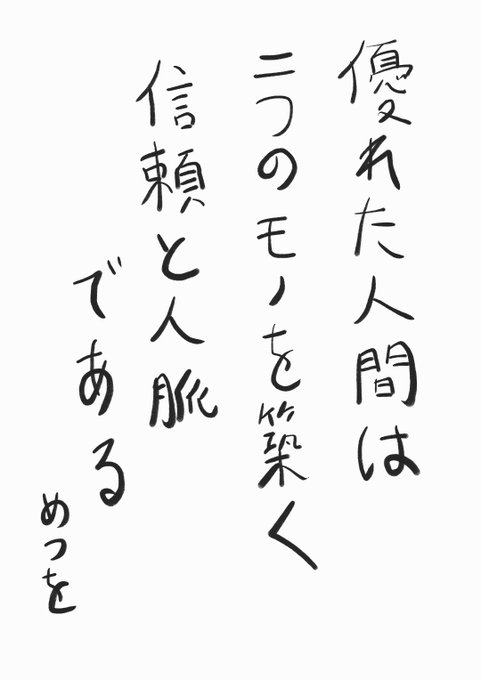 優れた人間は
二つのモノを築く
信頼と人脈
である
めつを